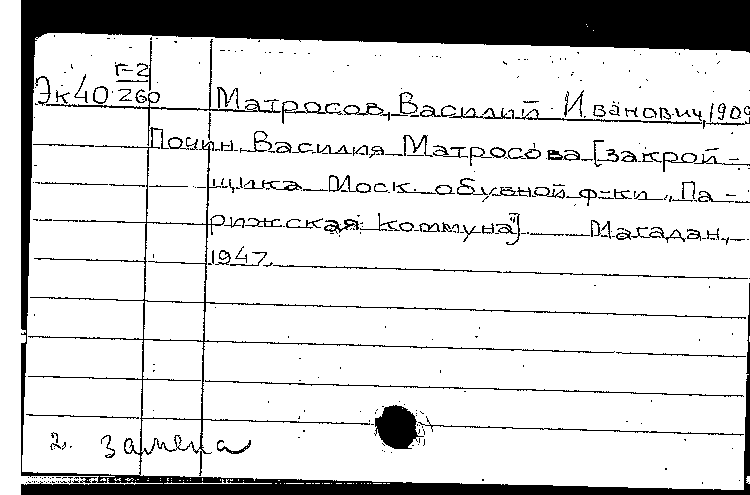 Г-2
Эк40 260
Матросов, Василий Иванович, 1909
Почин Василия Матросова [закрой-
щика Моск. обувной ф-ки „Па-
рижская Коммуна"] Магадан,
1947.
2. замена